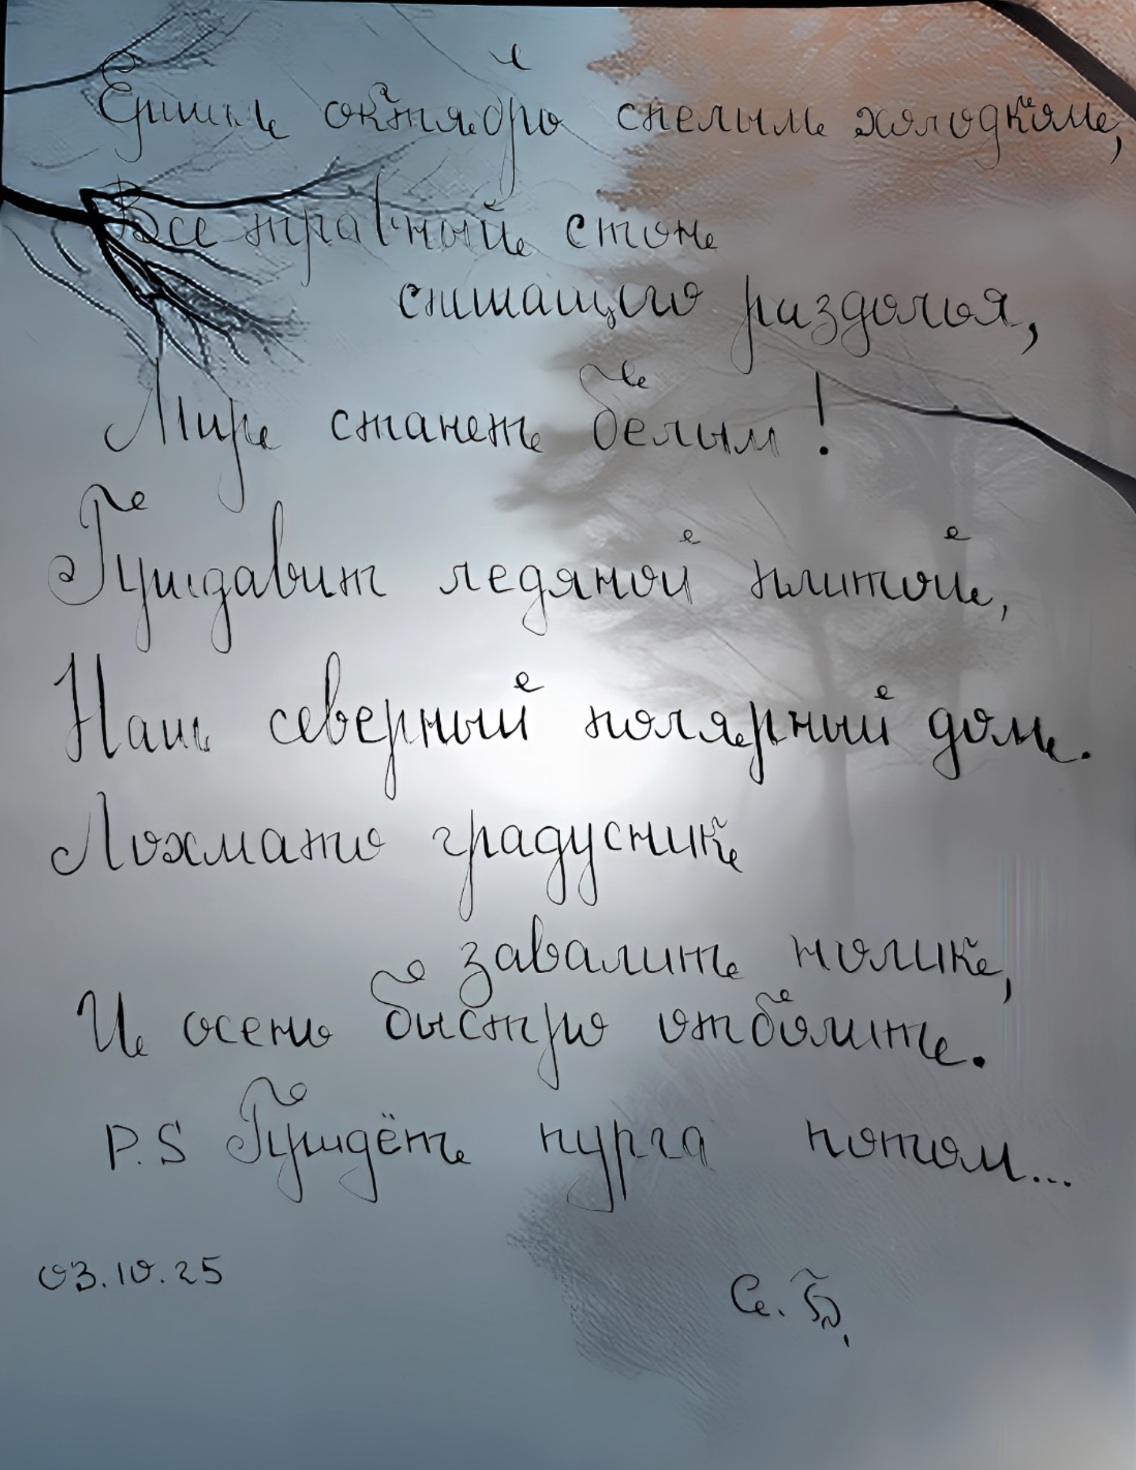 октябрь спелым холодком,
Все травный стон
раздолья,
Мир станет белым!
Придавит ледяной плитой,
Наш северный полярный дом.
Лохмато градусник
завалит нолик,
И осень быстро отболит.
P.S Придёт пурга потом...
03.10.25
С. Б.